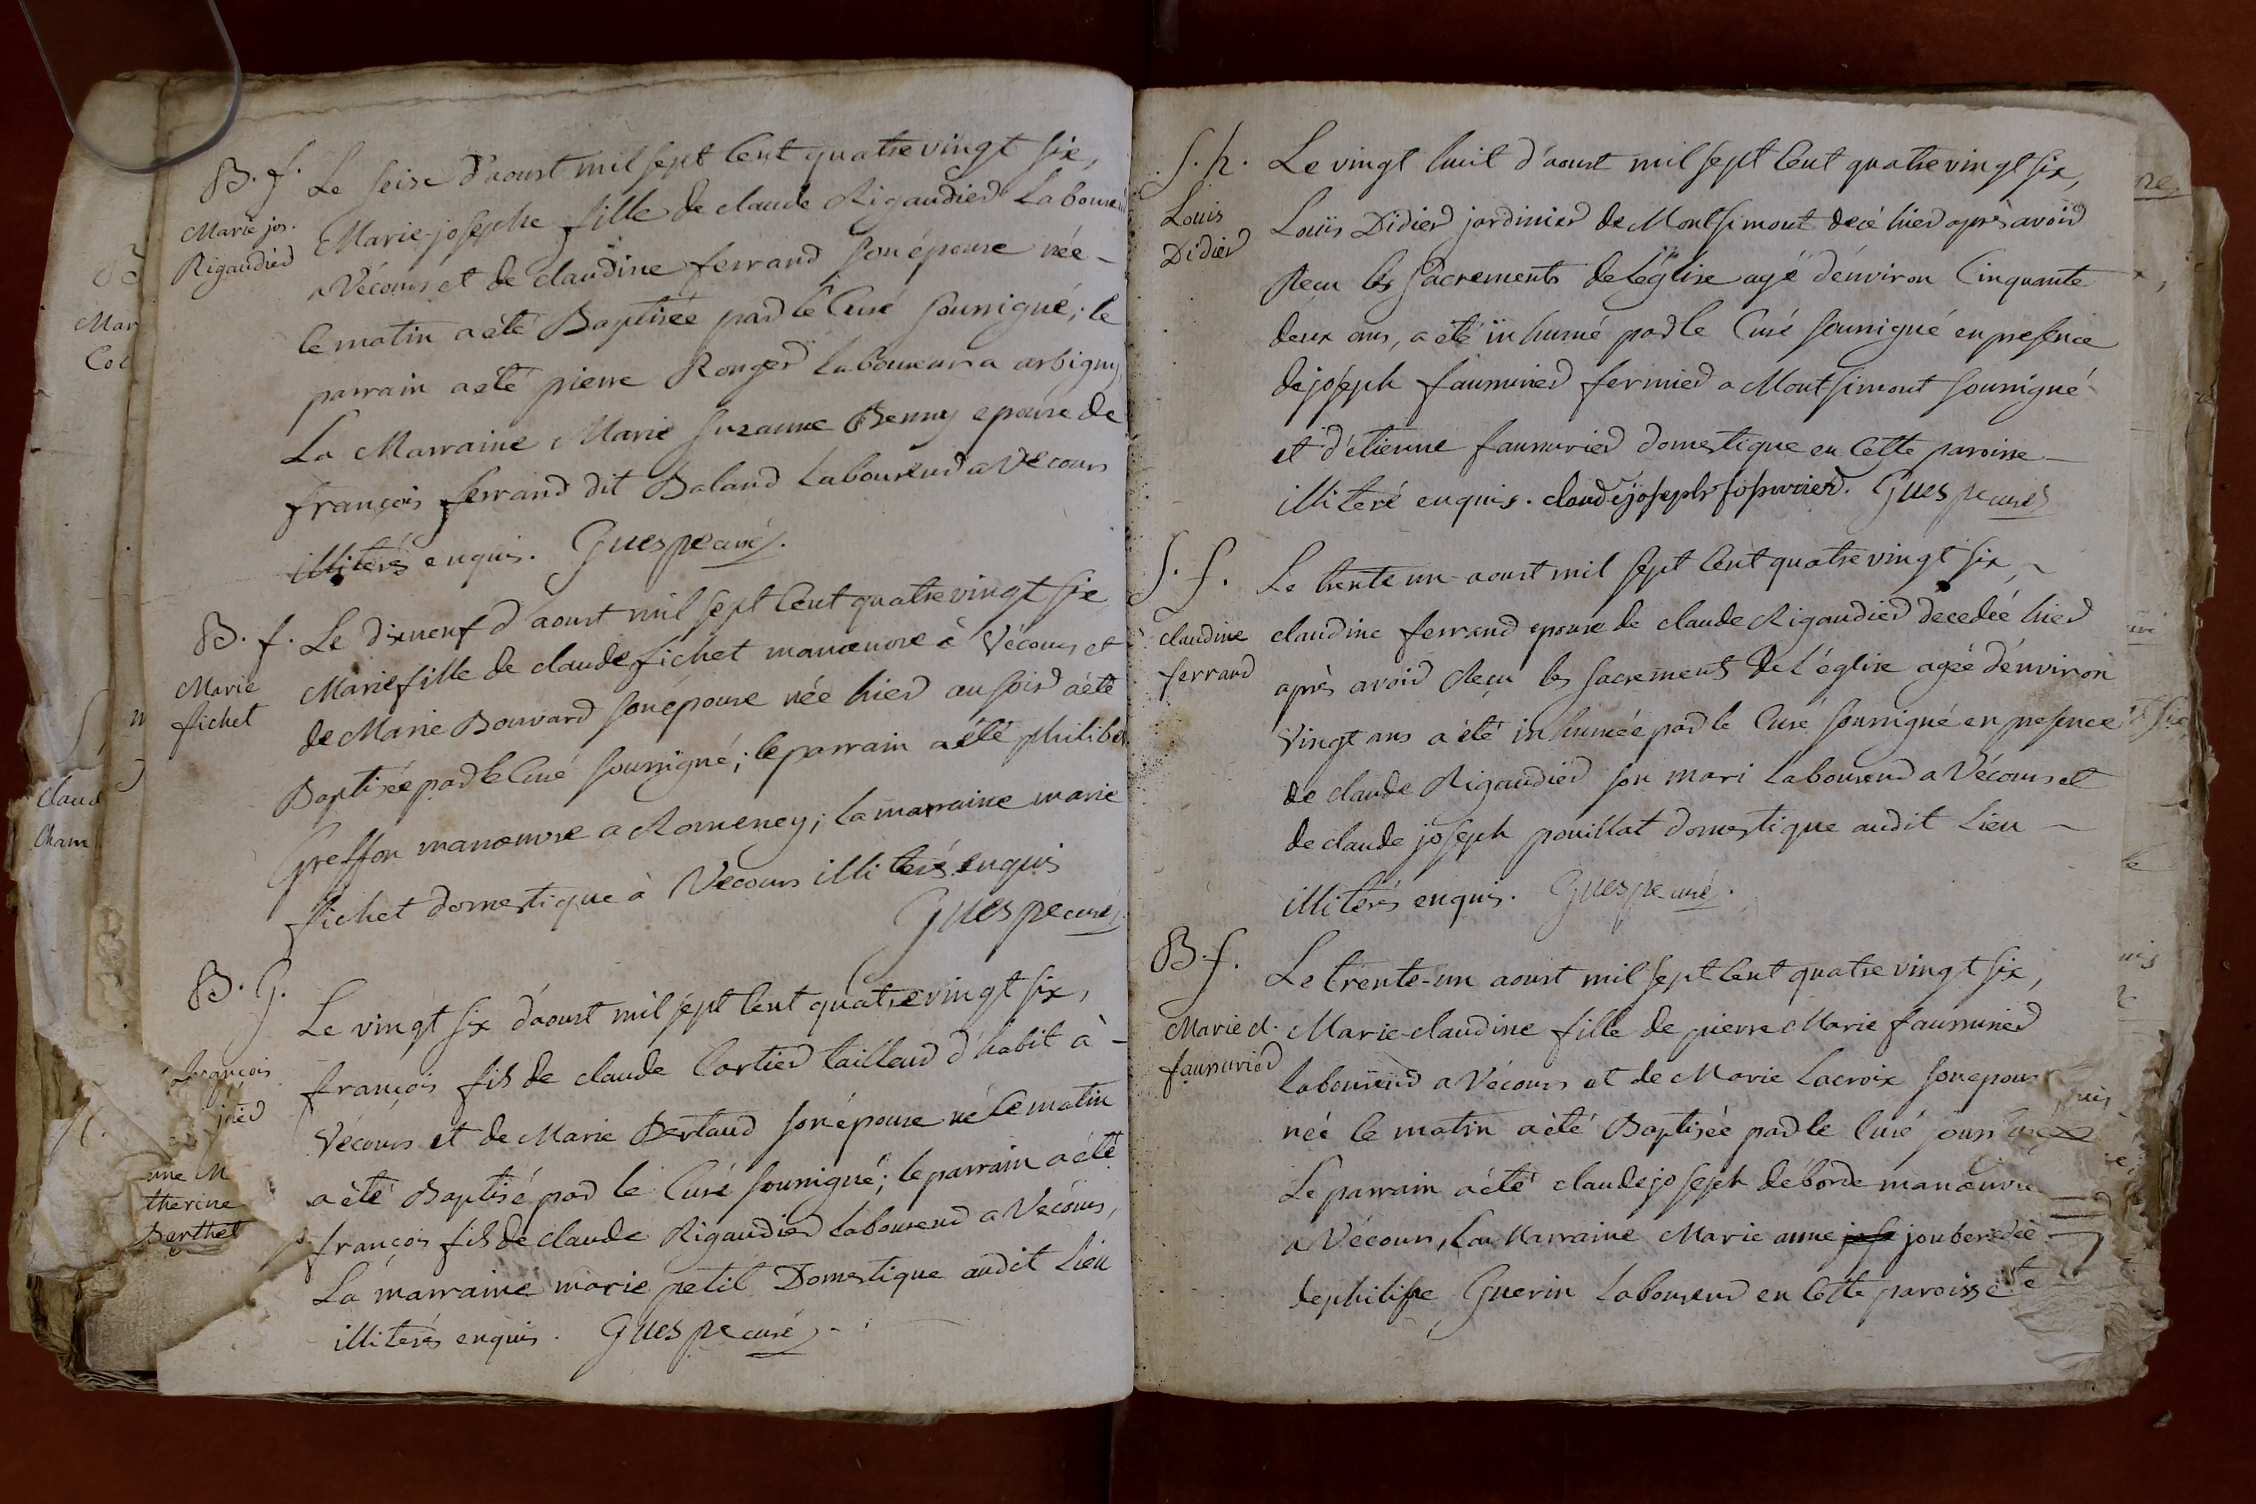 B. f.
Marie jos.
Rigaudier
Le seise d'aoust mil sept Cent quatre vingt six,
Marie-josephe fille de claude Rigaudier Laboure
a Vécours et de claudine ferrand son épouse née
le matin a été Baptisée par le Curé soussigné; le
parrain a été pierre Rouger Laboureur a arbigny
La Marraine Marie suzanne Benny epouse de
françois ferrand dit Baland Laboureur a Vecours
illiterés enquis. Guespe curé.
B. f.
Marie
fichet
Le dixneuf d'aoust mil sept Cent quatre vingt six
Marie fille de claude fichet manœuvre à Vécours et
de Marie Bouvard son épouse née hier au soir a été
Baptisée par le Curé soussigné; le parrain a été philiber
Greffon manœuvre a Romeney; la marraine marie
fichet domestique à Vecours illiterés enquis
Guespe curé.
B. G.
françois
tier
Le vingt six d'aoust mil sept Cent quatre vingt six,
françois fils de claude Cartier tailleur d'habit à
Vécours et de Marie Bertaud son épouse né le matin
a été Baptisé par le Curé soussigné; le parrain a été
françois fils de claude Rigaudier Laboureur a Vecours,
La marraine marie petit Domestique audit Lieu
illiterés enquis. Guespe curé.
Mar
Col
Claud
Cham
therine
Berthet
S. h.
Louis
Didier
Le vingt huit d'aoust mil sept Cent quatre vingt six,
Louis Didier jardinier de Montsimont decé hier après avoir
Reçu les Sacrements de L'église agé d'environ Cinquante
deux ans, a été inhumé par le Curé soussigné en presence
de joseph faussurier fermier a Montsimont soussigné
et d'étienne faussurier domestique en Cette paroisse
illiteré enquis. claude joseph fosurier. Guespe curé
S. f.
claudine
ferrand
Le trente un aoust mil sept Cent quatre vingt six,
claudine ferrand epouse de claude Rigaudier decedée hier
après avoir Reçu les Sacrements De L'église agée d'environ
Vingt ans a été inhumée par le Curé soussigné en presence
de claude Rigaudier son mari Laboureur a Vécours et
de claude joseph pouillat domestique audit Lieu
illiterés enquis. Guespe curé.
B. f.
Marie cl.
faussurier
Le trente-un aoust mil sept Cent quatre vingt six,
Marie-claudine fille de pierre Marie faussurier
laboureur a Vécours et de Marie Lacroix son epous
née le matin a été Baptisée par le Curé
Le parrain a été claude joseph déborde manœuvre
a Vécours, La Marraine Marie anne
de philippe Guerin Laboureur en Cette paroisse